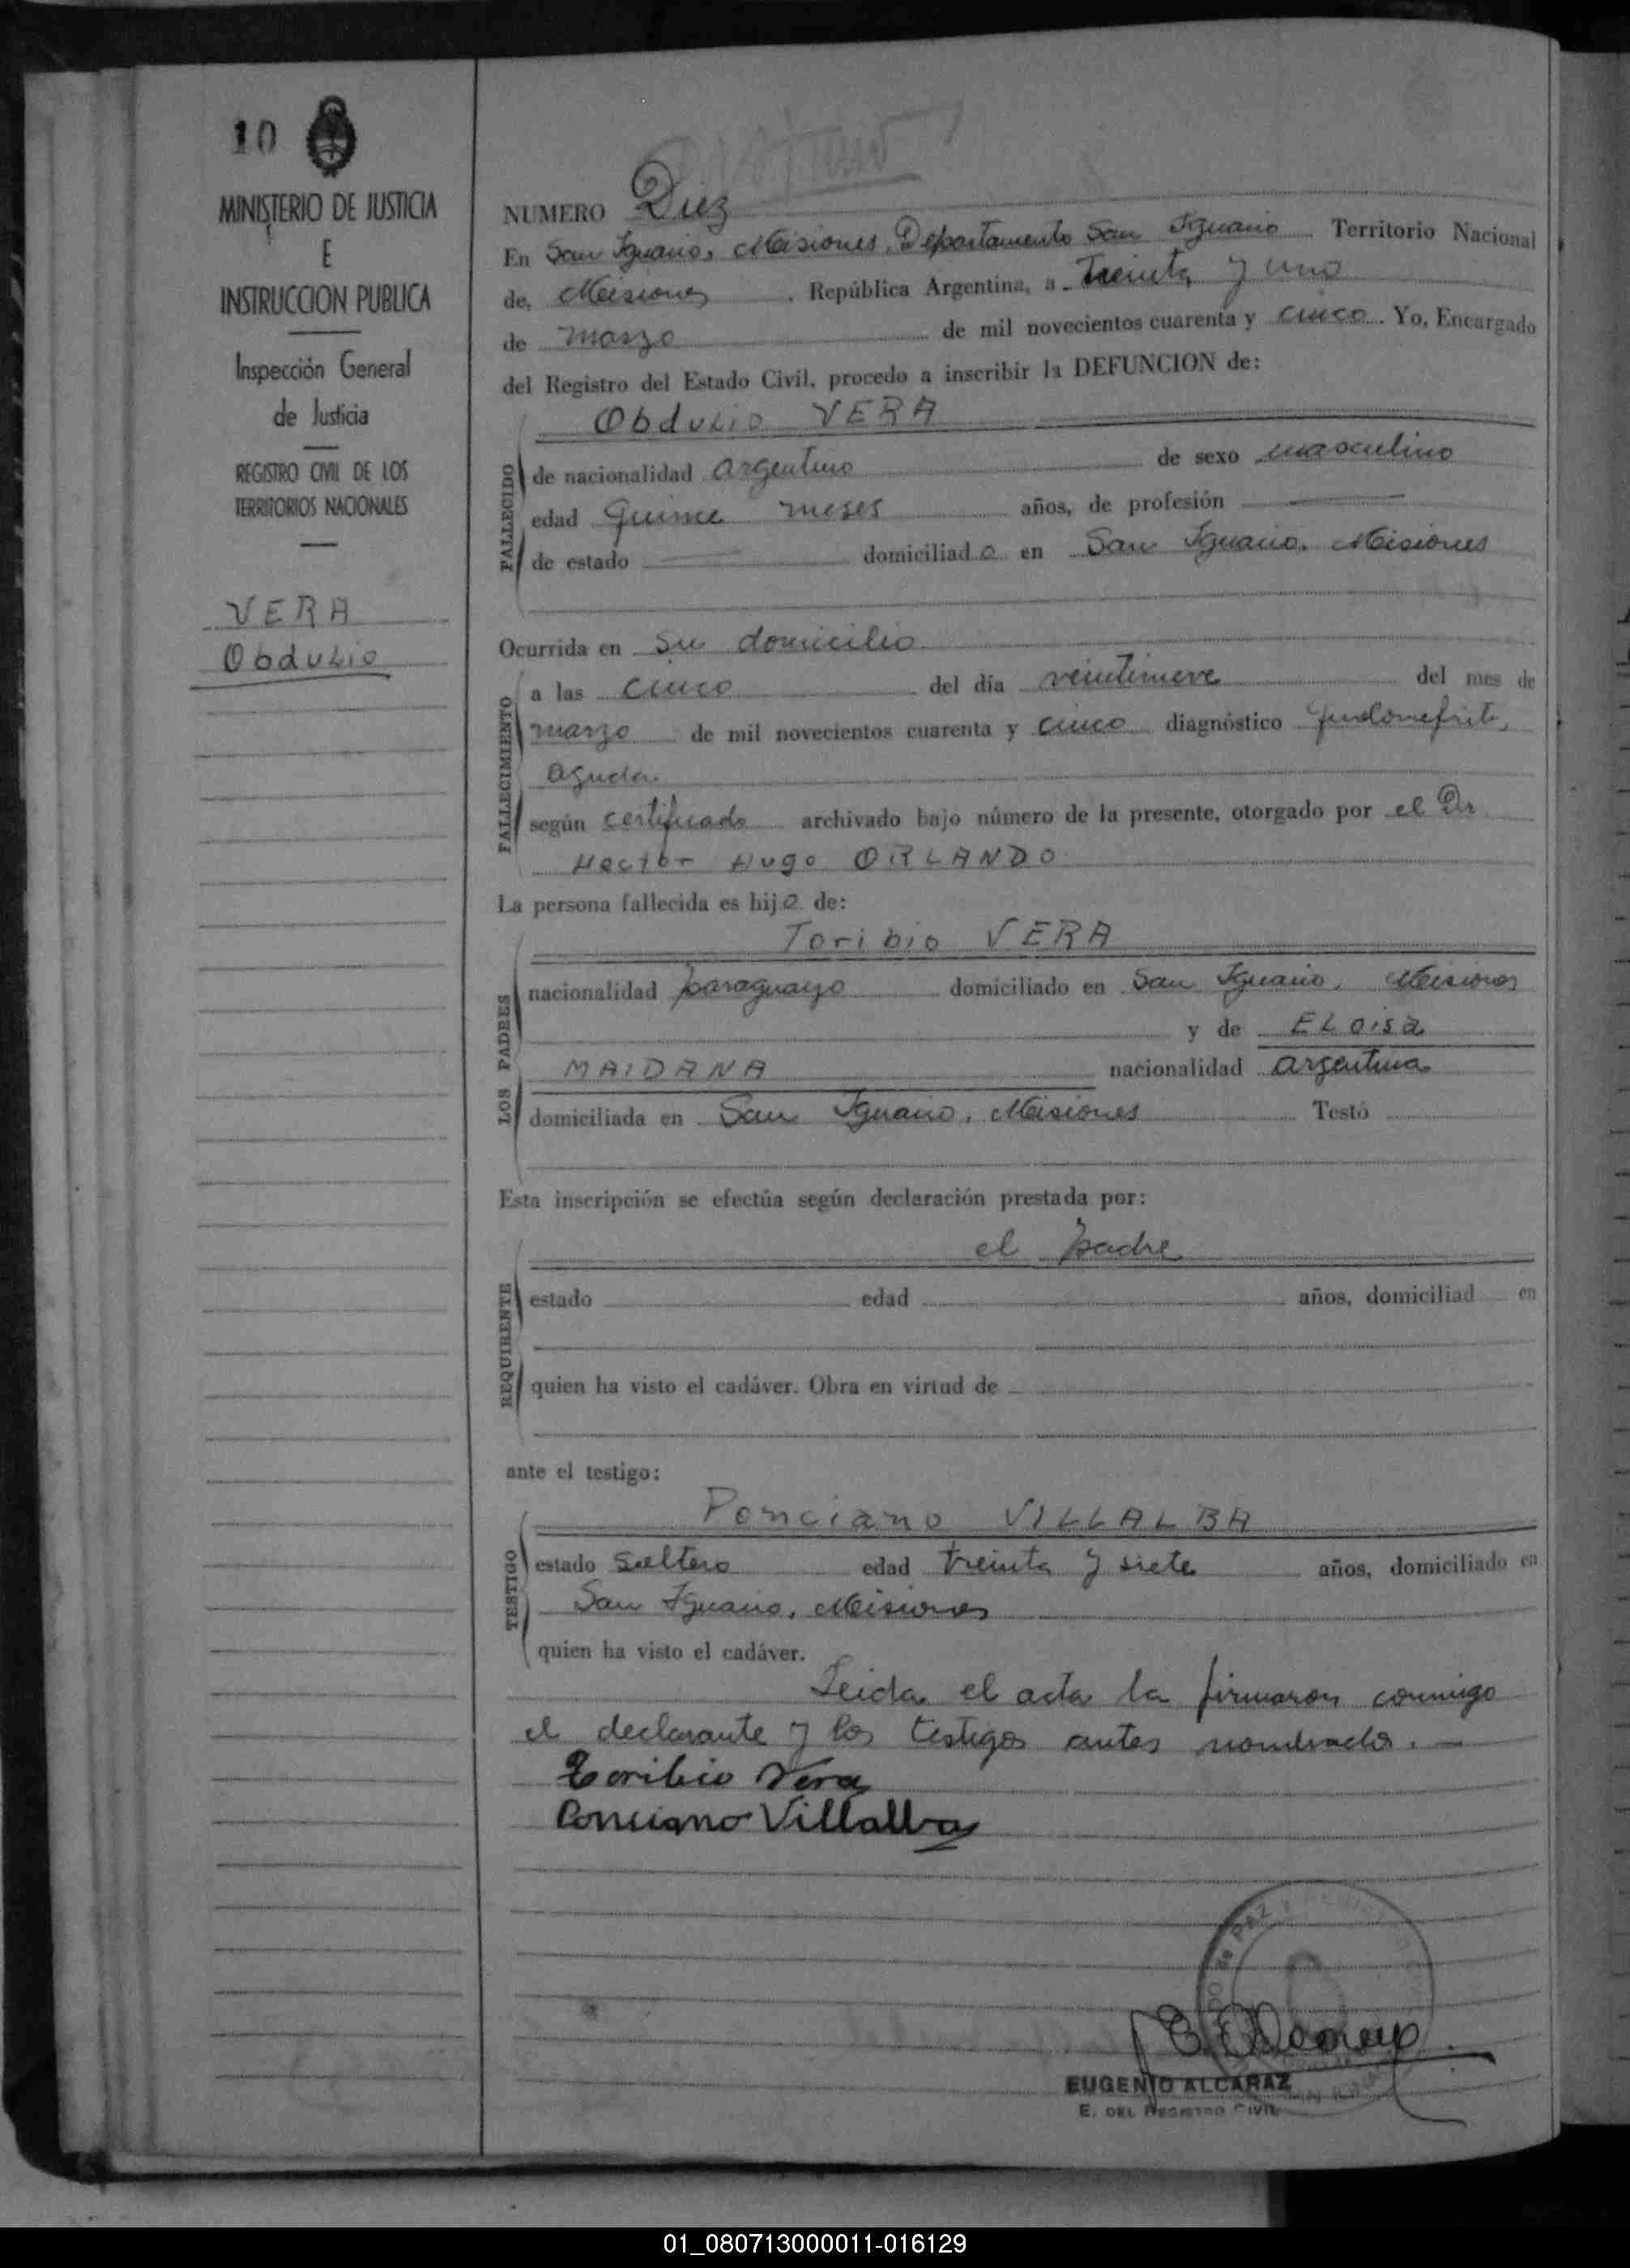 10
MINISTERIO DE JUSTICIA
E
INSTRUCCION PUBLICA
Inspección General
de Justicia
REGISTRO CIVIL DE LOS
TERRITORIOS NACIONALES
VERA
Obdulio
NUMERO Diez
En San Ignacio, Misiones, Departamento San Ignacio Territorio Nacional
de, Misiones, República Argentina, a Treinta y uno
de marzo de mil novecientos cuarenta y cinco. Yo, Encargado
del Registro del Estado Civil, procedo a inscribir la DEFUNCION de:
Obdulio VERA
FALLECIDO
de nacionalidad argentino de sexo masculino
edad Quince meses años, de profesión
de estado domiciliado en San Ignacio, Misiones
Ocurrida en su domicilio
FALLECIMIENTO
a las cinco del día veintinueve del mes de
marzo de mil novecientos cuarenta y cinco diagnóstico
aguda
según certificado archivado bajo número de la presente, otorgado por el Dr
Hector Hugo ORLANDO
La persona fallecida es hijo de:
Toribio VERA
LOS PADRES
nacionalidad paraguayo domiciliado en San Ignacio, Misiones
y de ELoisa
MAIDANA nacionalidad argentina
domiciliada en San Ignacio, Misiones Testó
Esta inscripción se efectúa según declaración prestada por:
el padre
REQUIRENTE
estado edad años, domiciliad en
quien ha visto el cadáver. Obra en virtud de
ante el testigo:
Ponciano VILLALBA
TESTIGO
estado soltero edad treinta y siete años, domiciliado en
San Ignacio, Misiones
quien ha visto el cadáver.
Leida el acta la firmaron conmigo
el declarante y los testigos antes nombrados.—
Toribio Vera
Ponciano Villalba
EUGENIO ALCARAZ
E. DEL REGISTRO CIVIL
01_080713000011-016129